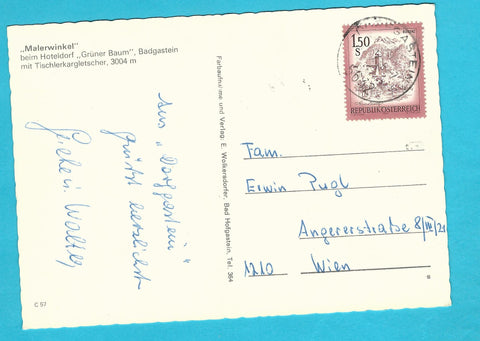 „Malerwinkel"
beim Hoteldorf „Grüner Baum", Badgastein
mit Tischlerkargletscher, 3004 m
Aus „Dorfgastein"
grüßt herzlichst
Farbaufnahme und Verlag: E. Wolkersdorfer, Bad Hofgastein, Tel. 364
C 57
1.50
S
REPUBLIK ÖSTERREICH
GASTEIN
Fam.
Erwin Pugl
Angererstraße 8/III/21
1210 Wien